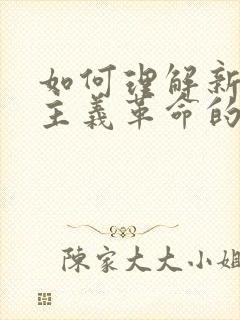 如何理解新
主義革命的
陳家大大小姐